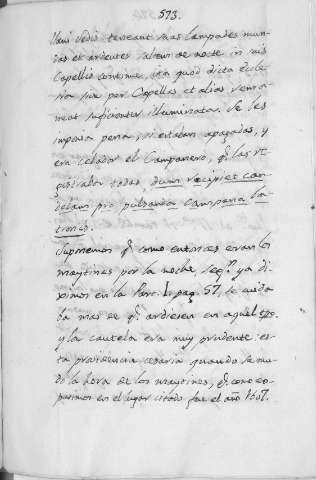 573.
suis teneant suas lampades mun-
das et ardentes saltem de nocte in suis
Capellis continue, ita quod dicta Eccle-
sia sic per Capellas et alias rema-
neat suficienter illuminata. Se les
imponia pena, si estaban apagadas, y
era celador el Campanero, q.e las re-
gistraba todas dum recipiet can-
delam pro pulsanda Campana la-
tronis.
Suponemos q.e como entonces eran los
maytines por la noche, seg.n ya di-
ximos en la Part. I. pag. 57, se cuida-
ba mas de q.e ardiesen en aquel tpo.
y la cautela era muy prudente: es-
ta providencia cesaria quando se mu-
dó la hora de los maytines, q.e como ex-
pusimos en el lugar citado fue el año 1607.